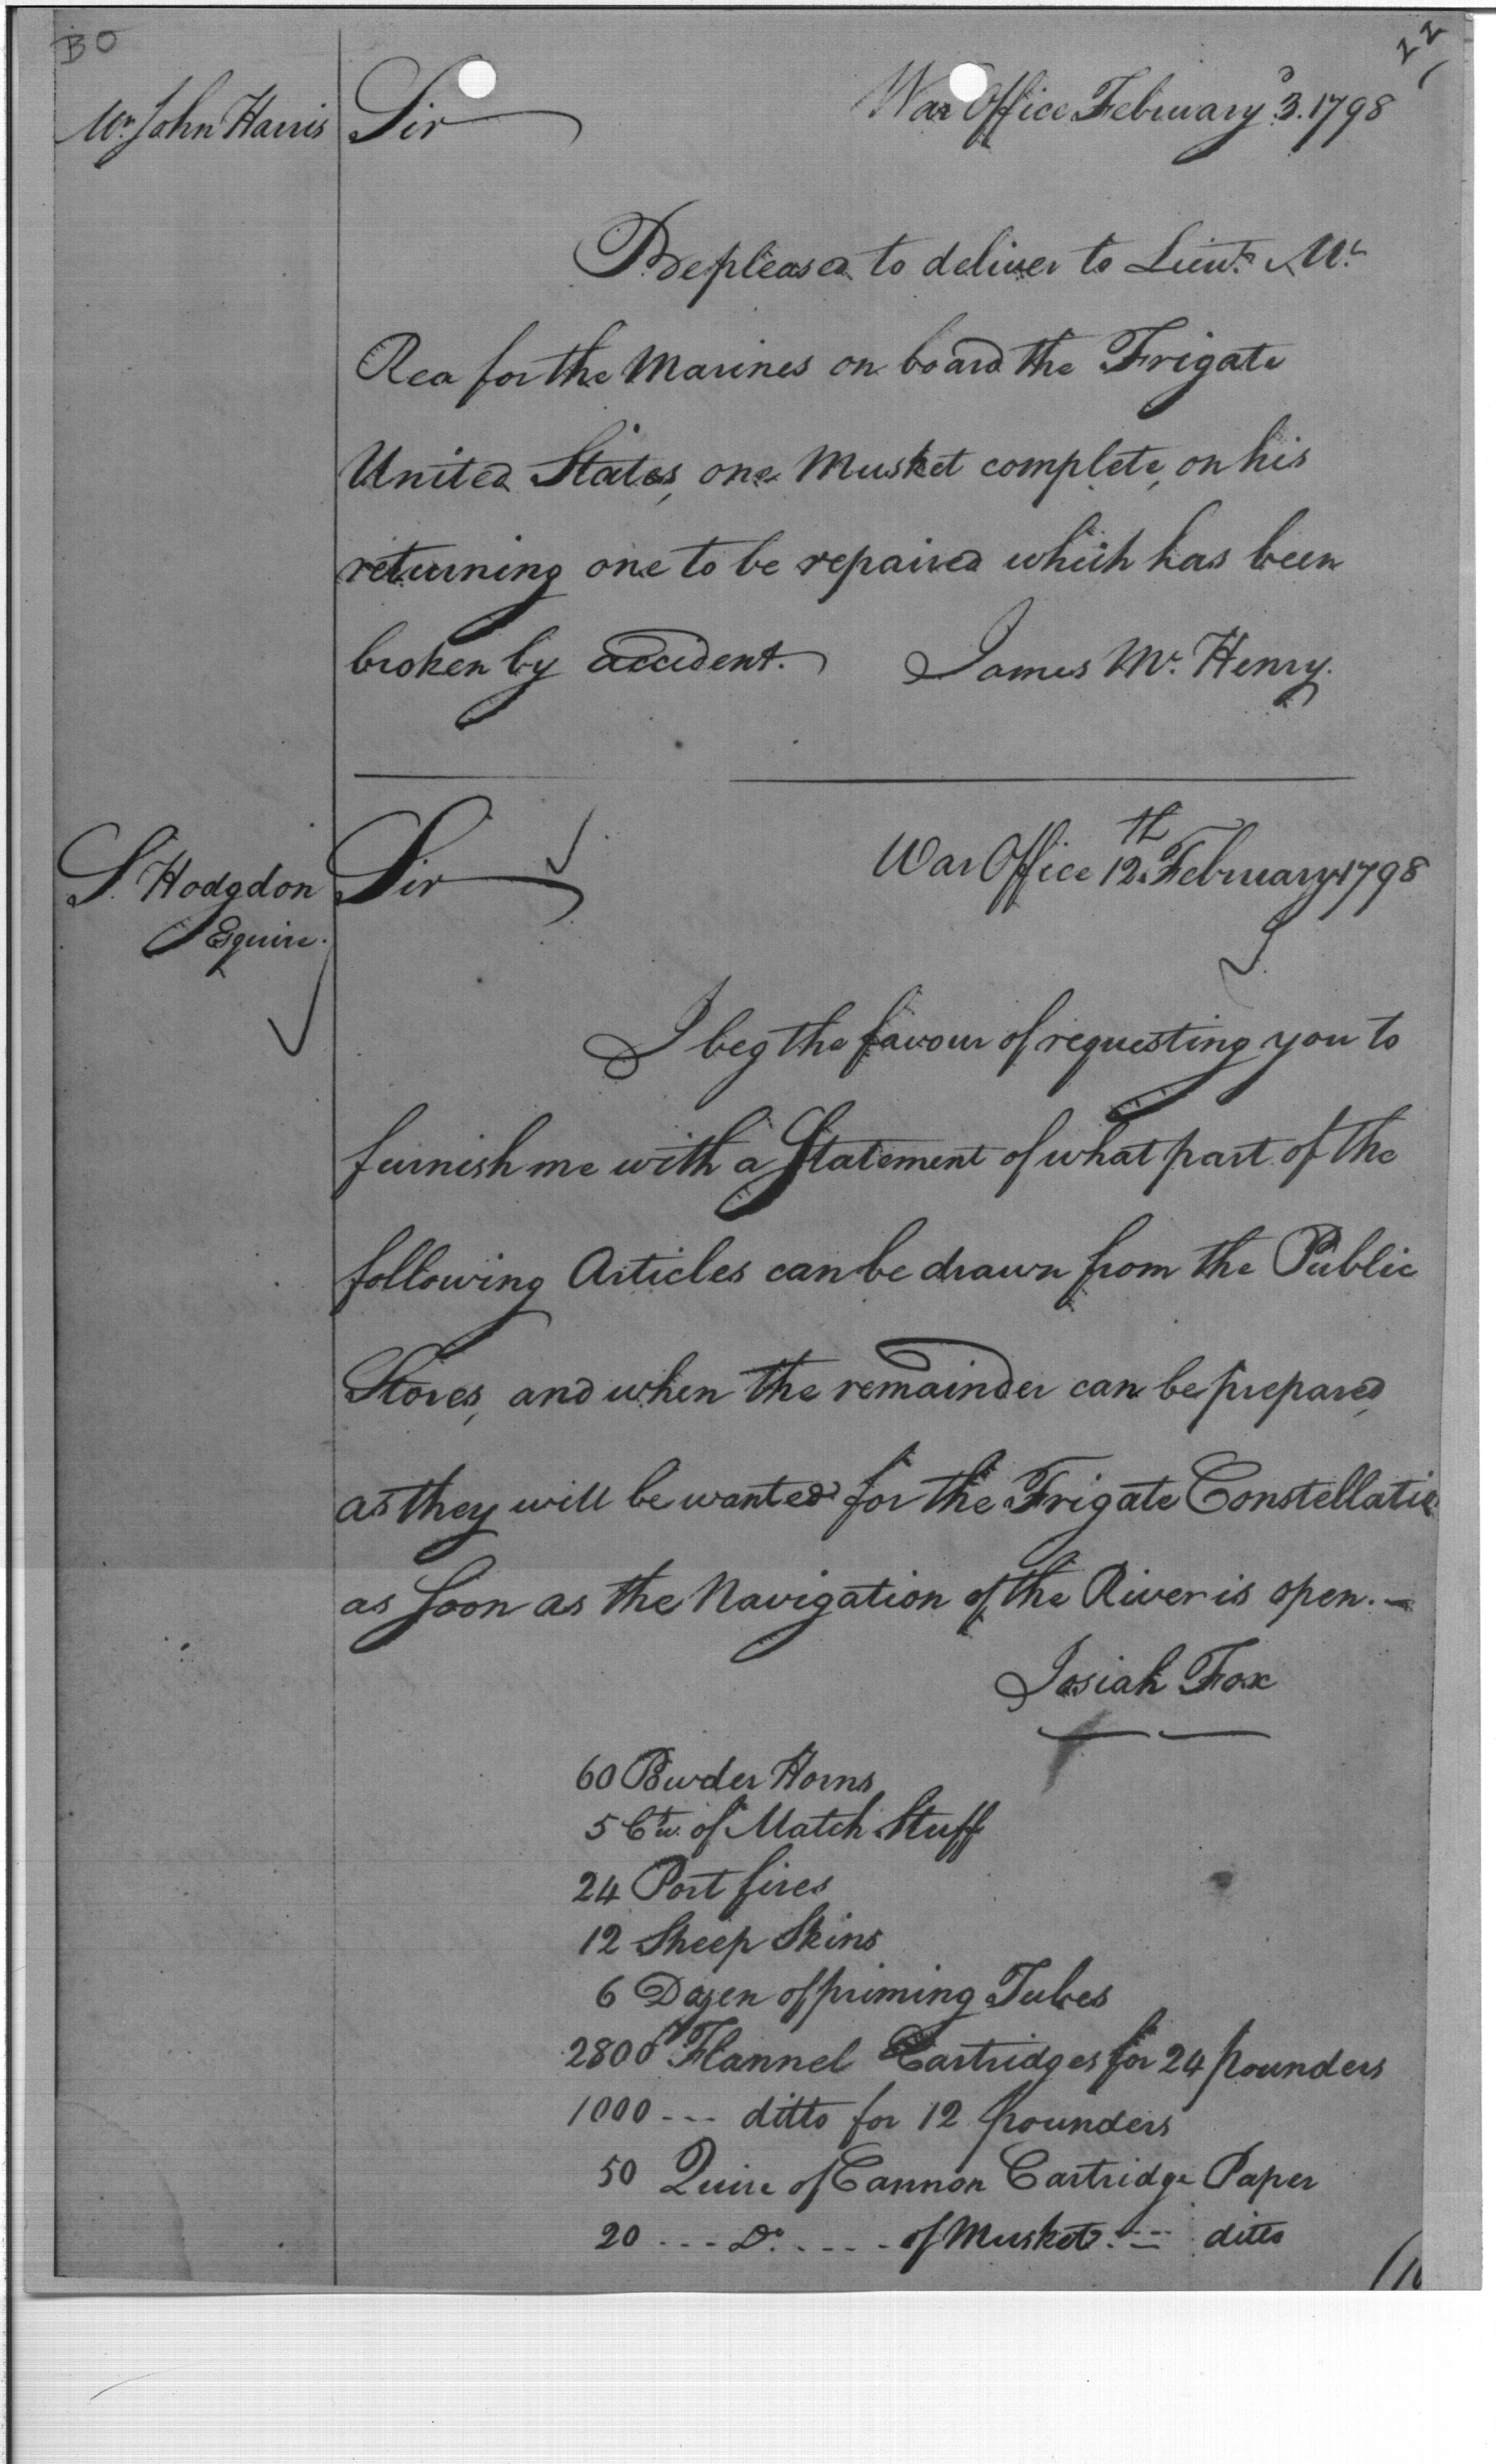 BO
22
Mr. John Harris
Sir
War Office February 3. 1798
Be pleased to deliver to Lieut. Mc
Rea for the Marines on board the Frigate
United States, one Musket complete, on his
returning one to be repaired which has been
broken by accident. James Mc. Henry.
S. Hodgdon
Esquire.
Sir
War Office 12th February 1798
I beg the favour of requesting you to
furnish me with a Statement of what part of the
following Articles can be drawn from the Public
Stores, and when the remainder can be prepared,
as they will be wanted for the Frigate Constellatio
as soon as the Navigation of the River is open. -
Josiah Fox
60 Powder Horns
5 Ctw. of Match Stuff
24 Port fires
12 Sheep Skins
6 Dozen of priming Tubes
2800 Flannel Cartridges for 24 pounders
1000 --- ditto for 12 pounders
50 Quire of Cannon Cartridge Paper
20 --- Do. ---- of Musket --- ditto